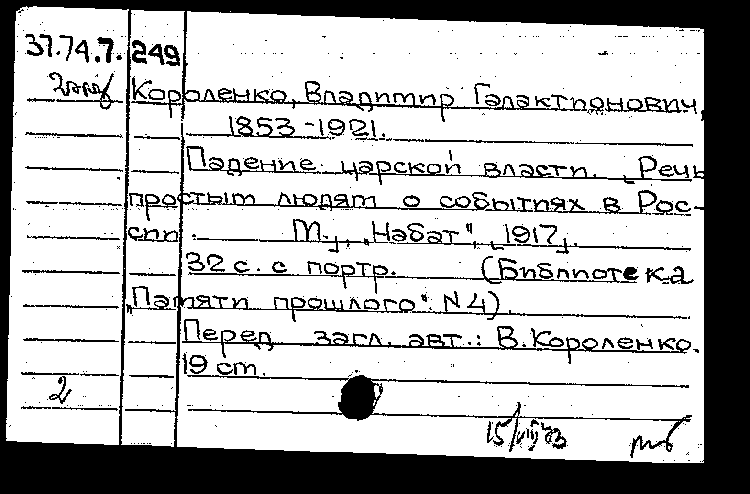 37.74.7.249
2 экз
Короленко, Владимир Галактионович,
1853-1921.
Падение царской власти. Речь
простым людям о событиях в Рос-
сии. М., "Набат", [1917].
32 с. с портр. (Библиотека
"Памяти прошлого". N 4).
Перед загл. авт.: В. Короленко.
19 см.
2
15/VIII